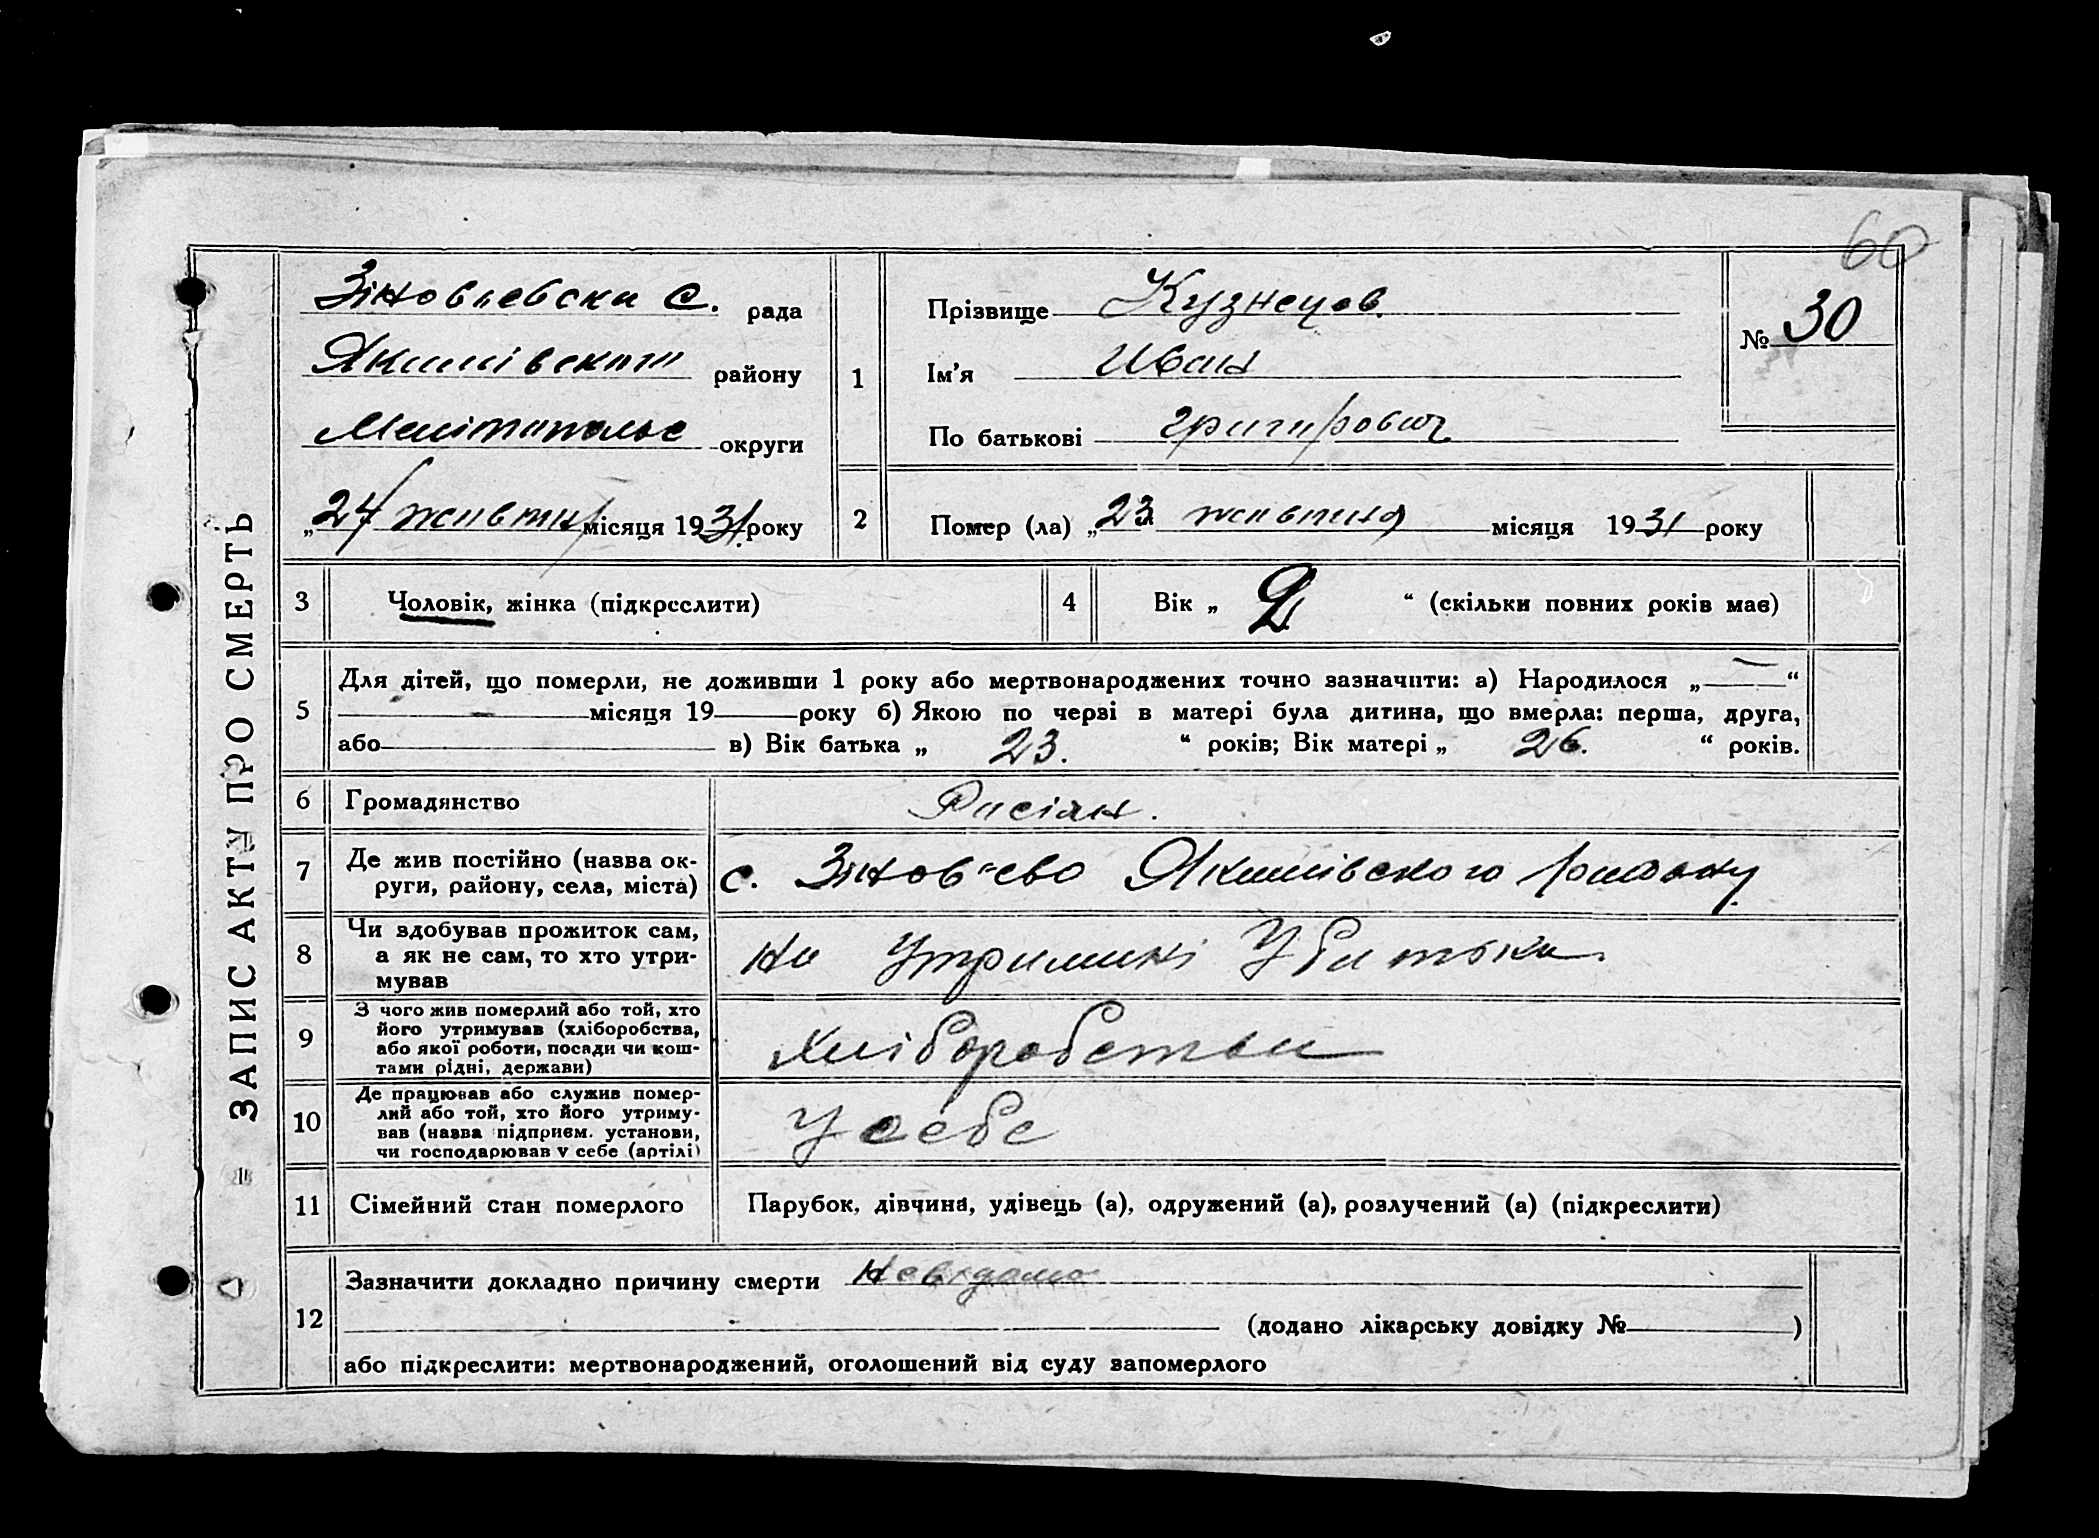 60
ЗАПИС АКТУ ПРО СМЕРТЬ
Зіновʼєвска С. рада
Якимівского району
Мелітополье округи
„24 жовтня місяця 1931 року
1
Прізвище Кузнецов.
Ім'я Иван
По батькові Григорович
№ 30
2
Помер (ла) „23 жовтня місяця 1931 року
3 Чоловік, жінка (підкреслити)
4 Вік „ 2 “ (скільки повних років має)
5
Для дітей, що померли, не доживши 1 року або мертвонароджених точно зазначити: а) Народилося „ — “
місяця 19 року б) Якою по черзі в матері була дитина, що вмерла: перша, друга,
або в) Вік батька „ 23. “ років; Вік матері „ 26. “ років.
6 Громадянство Расіян.
7 Де жив постійно (назва ок-
руги, району, села, міста)
с. Зіновʼєво Якимівского району
8 Чи здобував прожиток сам,
а як не сам, то хто утри-
мував
на утримані у батька
9 З чого жив померлий або той, хто
його утримував (хліборобства,
або якої роботи, посади чи кош-
тами рідні, держави)
хліборобства
10 Де працював або служив помер-
лий або той, хто його утриму-
вав (назва підприєм. установи,
чи господарював у себе (артілі)
У себе
11 Сімейний стан померлого Парубок, дівчина, удівець (а), одружений (а), розлучений (а) (підкреслити)
12
Зазначити докладно причину смерти невідома
(додано лікарську довідку № )
або підкреслити: мертвонароджений, оголошений від суду запомерлого